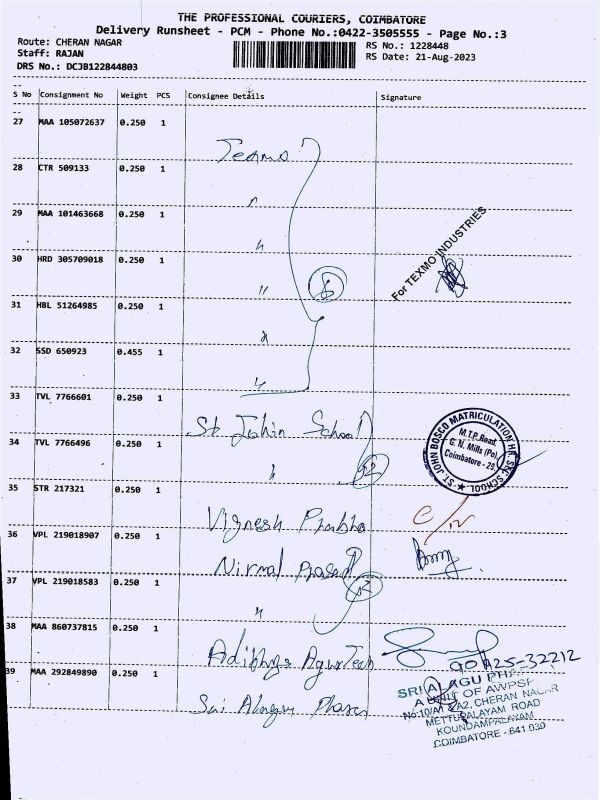 THE PROFESSIONAL COURIERS, COIMBATORE
Delivery Runsheet - PCM - Phone No.:0422-3505555 - Page No.:3
Route: CHERAN NAGAR
RS No.: 1228448
Staff: RAJAN
RS Date: 21-Aug-2023
DRS No.: DCJB122844803
S No Consignment No Weight PCS Consignee Details Signature
27 MAA 105072637 0.250 1
Texmo
28 CTR 509133 0.250 1
"
29 MAA 101463668 0.250 1
"
30 HRD 305709018 0.250 1
"
6
For TEXMO INDUSTRIES
31 HBL 51264985 0.250 1
"
32 SSD 650923 0.455 1
"
33 TVL 7766601 0.250 1
St John School
34 TVL 7766496 0.250 1
"
2
ST. JOHN BOSCO MATRICULATION HR. SEC SCHOOL
M.T.P. Road,
G. N. Mills (Po),
Coimbatore - 29
35 STR 217321 0.250 1
Vignesh Prabha
36 VPL 219018907 0.250 1
Nirmal Prasad
37 VPL 219018583 0.250 1
"
2
38 MAA 860737815 0.250 1
Tech
39 MAA 292849890 0.250 1
Sri Alagu
SRI ALAGU
A UNIT OF AWPSF
No:10/A1 &A2, CHERAN NAGAR
METTUPALAYAM ROAD
KOUNDAMPALAYAM
COIMBATORE - 641 030